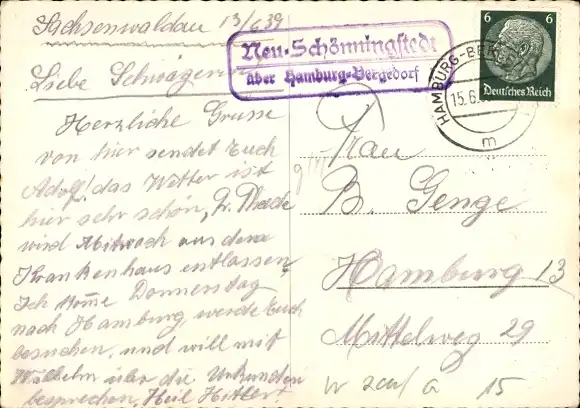 Sachsenwaldau 13/6 39
Liebe Schwägerin
Herzliche Grüsse
von hier sendet Euch
Adolf! das Wetter ist
hier sehr schön,
wird Mittwoch aus dem
Krankenhaus entlassen,
Ich komme Donnerstag
nach Hamburg, werde Euch
besuchen, und will mit
Wilhelm über die Urkunden
besprechen, Heil Hitler!
Neu-Schönningstedt
über Hamburg-Bergedorf
6 6
Deutsches Reich
HAMBURG-BERGEDORF
15.6.
m
Frau
B. Genge
Hamburg 13
Mittelweg 29
15